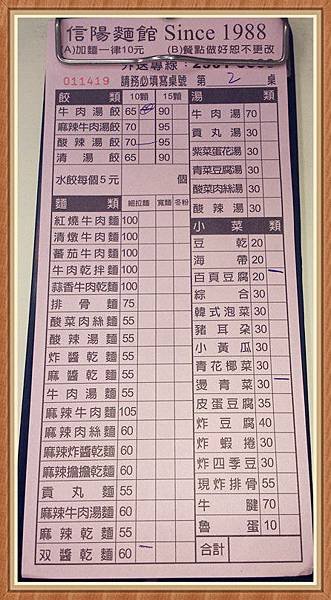 信陽麵館 Since 1988
(A)加麵一律10元 (B)餐點做好恕不更改
外送專線：
011419 請務必填寫桌號 第 2 桌
餃類 10顆 15顆
牛肉湯餃 65 90
麻辣牛肉湯餃 70 95
酸辣湯餃 70 95
清湯餃 65 90
水餃每個5元 個
麵類 細拉麵 寬麵 冬粉
紅燒牛肉麵 100
清燉牛肉麵 100
蕃茄牛肉麵 100
牛肉乾拌麵 100
蒜香牛肉乾麵 100
排骨麵 75
酸菜肉絲麵 55
酸辣湯麵 55
炸醬乾麵 55
麻醬乾麵 55
牛肉湯麵 55
麻辣牛肉麵 105
麻辣肉絲麵 60
麻辣炸醬乾麵 60
麻辣擔擔乾麵 60
貢丸麵 55
麻辣牛肉湯麵 60
麻辣乾麵 55
双醬乾麵 60
湯類
牛肉湯 70
貢丸湯 30
紫菜蛋花湯 30
青菜豆腐湯 30
酸菜肉絲湯 30
酸辣湯 30
小菜類
豆乾 20
海帶 20
百頁豆腐 20
綜合 30
韓式泡菜 30
豬耳朵 30
小黃瓜 30
青花椰菜 30
燙青菜 30
皮蛋豆腐 35
炸豆腐 40
炸蝦捲 30
炸四季豆 30
現炸排骨 55
牛腱 70
魯蛋 10
合計